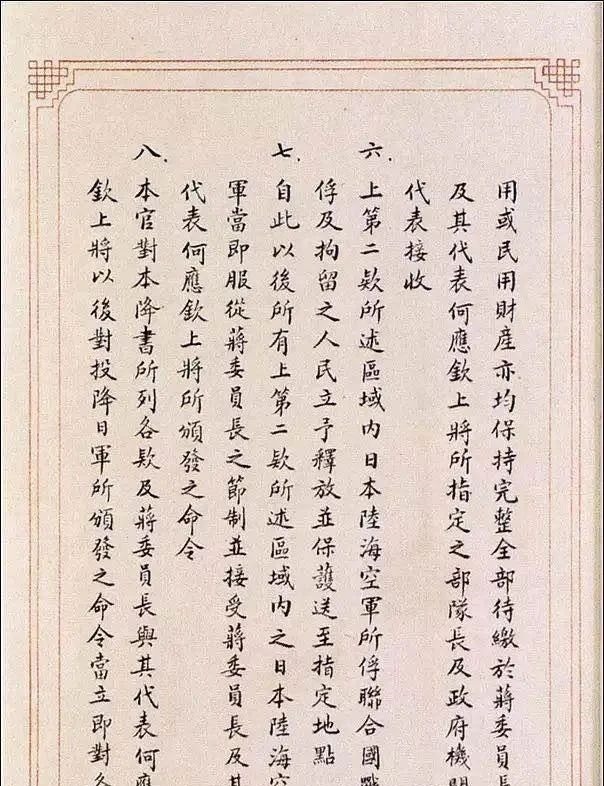 用或民用財產亦均保持完整全部待繳於蔣委員長
及其代表何應欽上將所指定之部隊長及政府機關
代表接收
六.上第二欵所述區域內日本陸海空軍所俘聯合國戰
俘及拘留之人民立予釋放並保護送至指定地點
七.自此以後所有上第二欵所述區域內之日本陸海空
軍當即服從蔣委員長之節制並接受蔣委員長及其
代表何應欽上將所頒發之命令
八.本官對本降書所列各欵及蔣委員長與其代表何應
欽上將以後對投降日軍所頒發之命令當立即對各